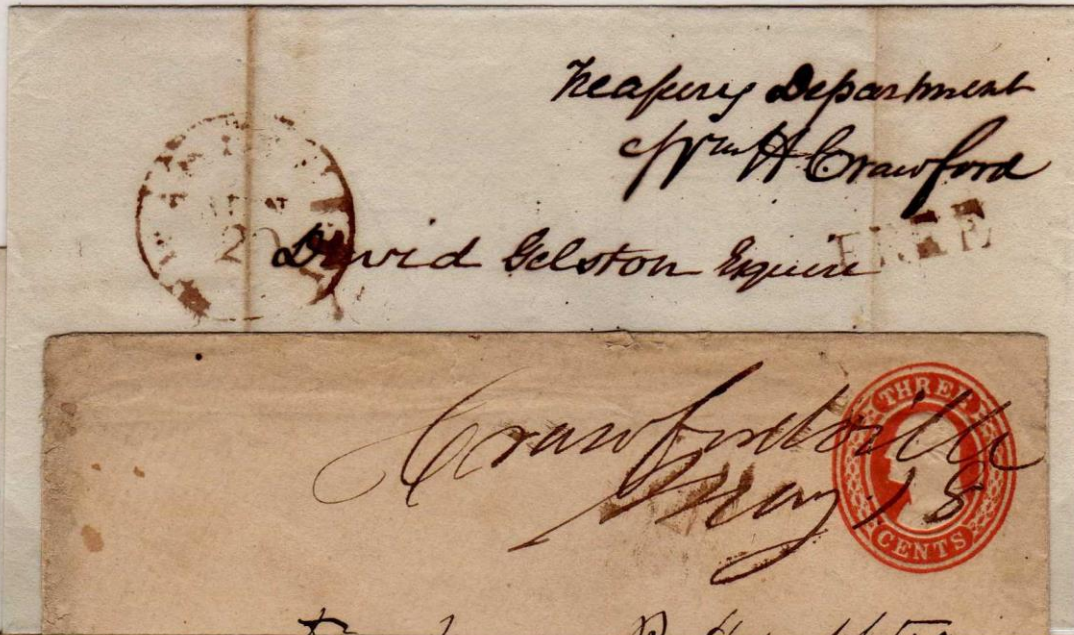 Treasury Department
Wm H Crawford
FREE
20
David Gelston Esquire
Crawfordville
May 18
THREE
CENTS